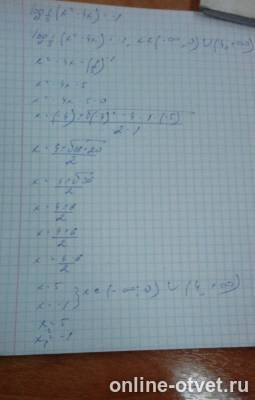 log 1/5 (x² - 4x) = -1
log 1/5 (x² - 4x) = -1, x ∈ (-∞, 0) ∪ (4, +∞)
x² - 4x = (1/5)⁻¹
x² - 4x = 5
x² - 4x - 5 = 0
x = (-(-4) ± √((-4)² - 4 · 1 · (-5))) / (2 · 1)
x = (4 ± √(16 + 20)) / 2
x = (4 ± √36) / 2
x = (4 ± 6) / 2
x = (4 + 6) / 2
x = (4 - 6) / 2
x = 5
x = -1 } x ∈ (-∞; 0) ∪ (4, +∞)
x₁ = 5
x₂ = -1
online-otvet.ru